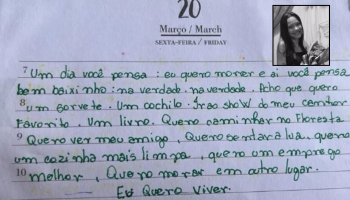 20
Março / March
SEXTA-FEIRA / FRIDAY
7 Um dia você pensa: eu quero morrer e aí você pensa
bem baixinho: na verdade, na verdade, Acho que quero
8 um sorvete. Um cochilo. Ir ao show do meu cantor
Favorito. Um livro. Quero caminhar no Floresta
9 Quero ver meu amigo, Quero sentar a lua, quero
um cozinha mais limpa, quero um emprego
10 melhor, Quero morar em outro lugar.
Eu Quero Viver.